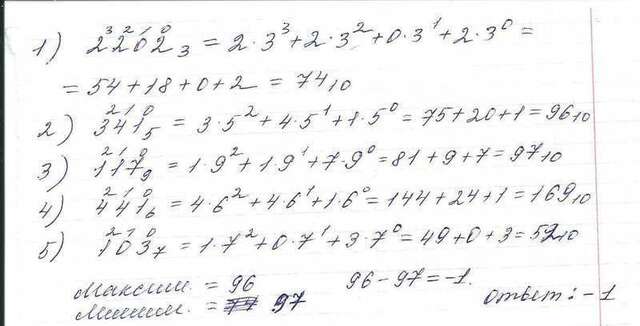 1) 2³2²0¹2⁰₃ = 2·3³+2·3²+0·3¹+2·3⁰ =
= 54+18+0+2 = 74₁₀
2) 3²4¹1⁰₅ = 3·5²+4·5¹+1·5⁰ = 75+20+1 = 96₁₀
3) 1²1¹7⁰₉ = 1·9²+1·9¹+7·9⁰ = 81+9+7 = 97₁₀
4) 4²4¹1⁰₆ = 4·6²+4·6¹+1·6⁰ = 144+24+1 = 169₁₀
5) 1²0¹3⁰₇ = 1·7²+0·7¹+3·7⁰ = 49+0+3 = 52₁₀
Максим. = 96 96-97 = -1.
Миним. = 97 Ответ: -1